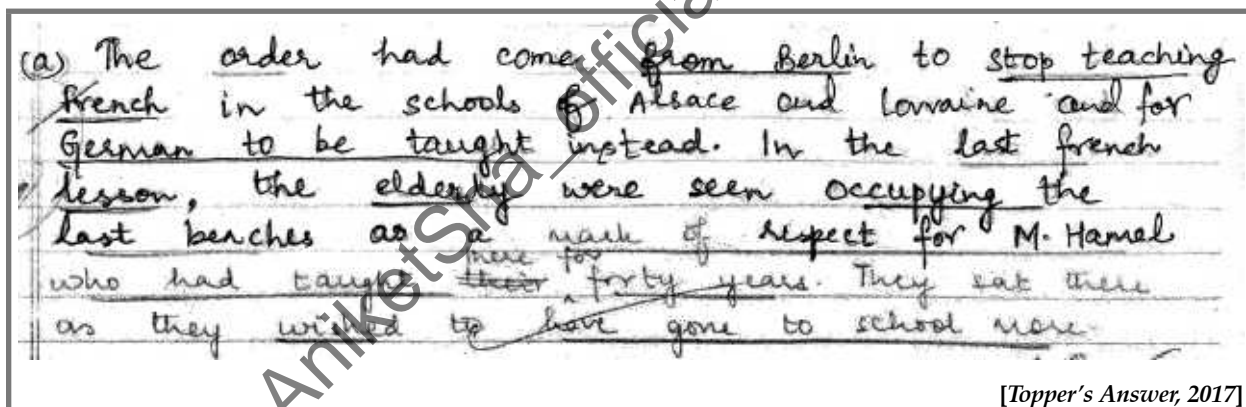 (a) The order had come from Berlin to stop teaching
french in the schools of Alsace and Lorraine and for
German to be taught instead. In the last french
lesson, the elderly were seen occupying the
last benches as a mark of respect for M. Hamel
who had taught their here for forty years. They sat there
as they wished to have gone to school more.
[Topper's Answer, 2017]
AniketSha_official